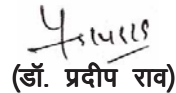 (डॉ. प्रदीप राव)